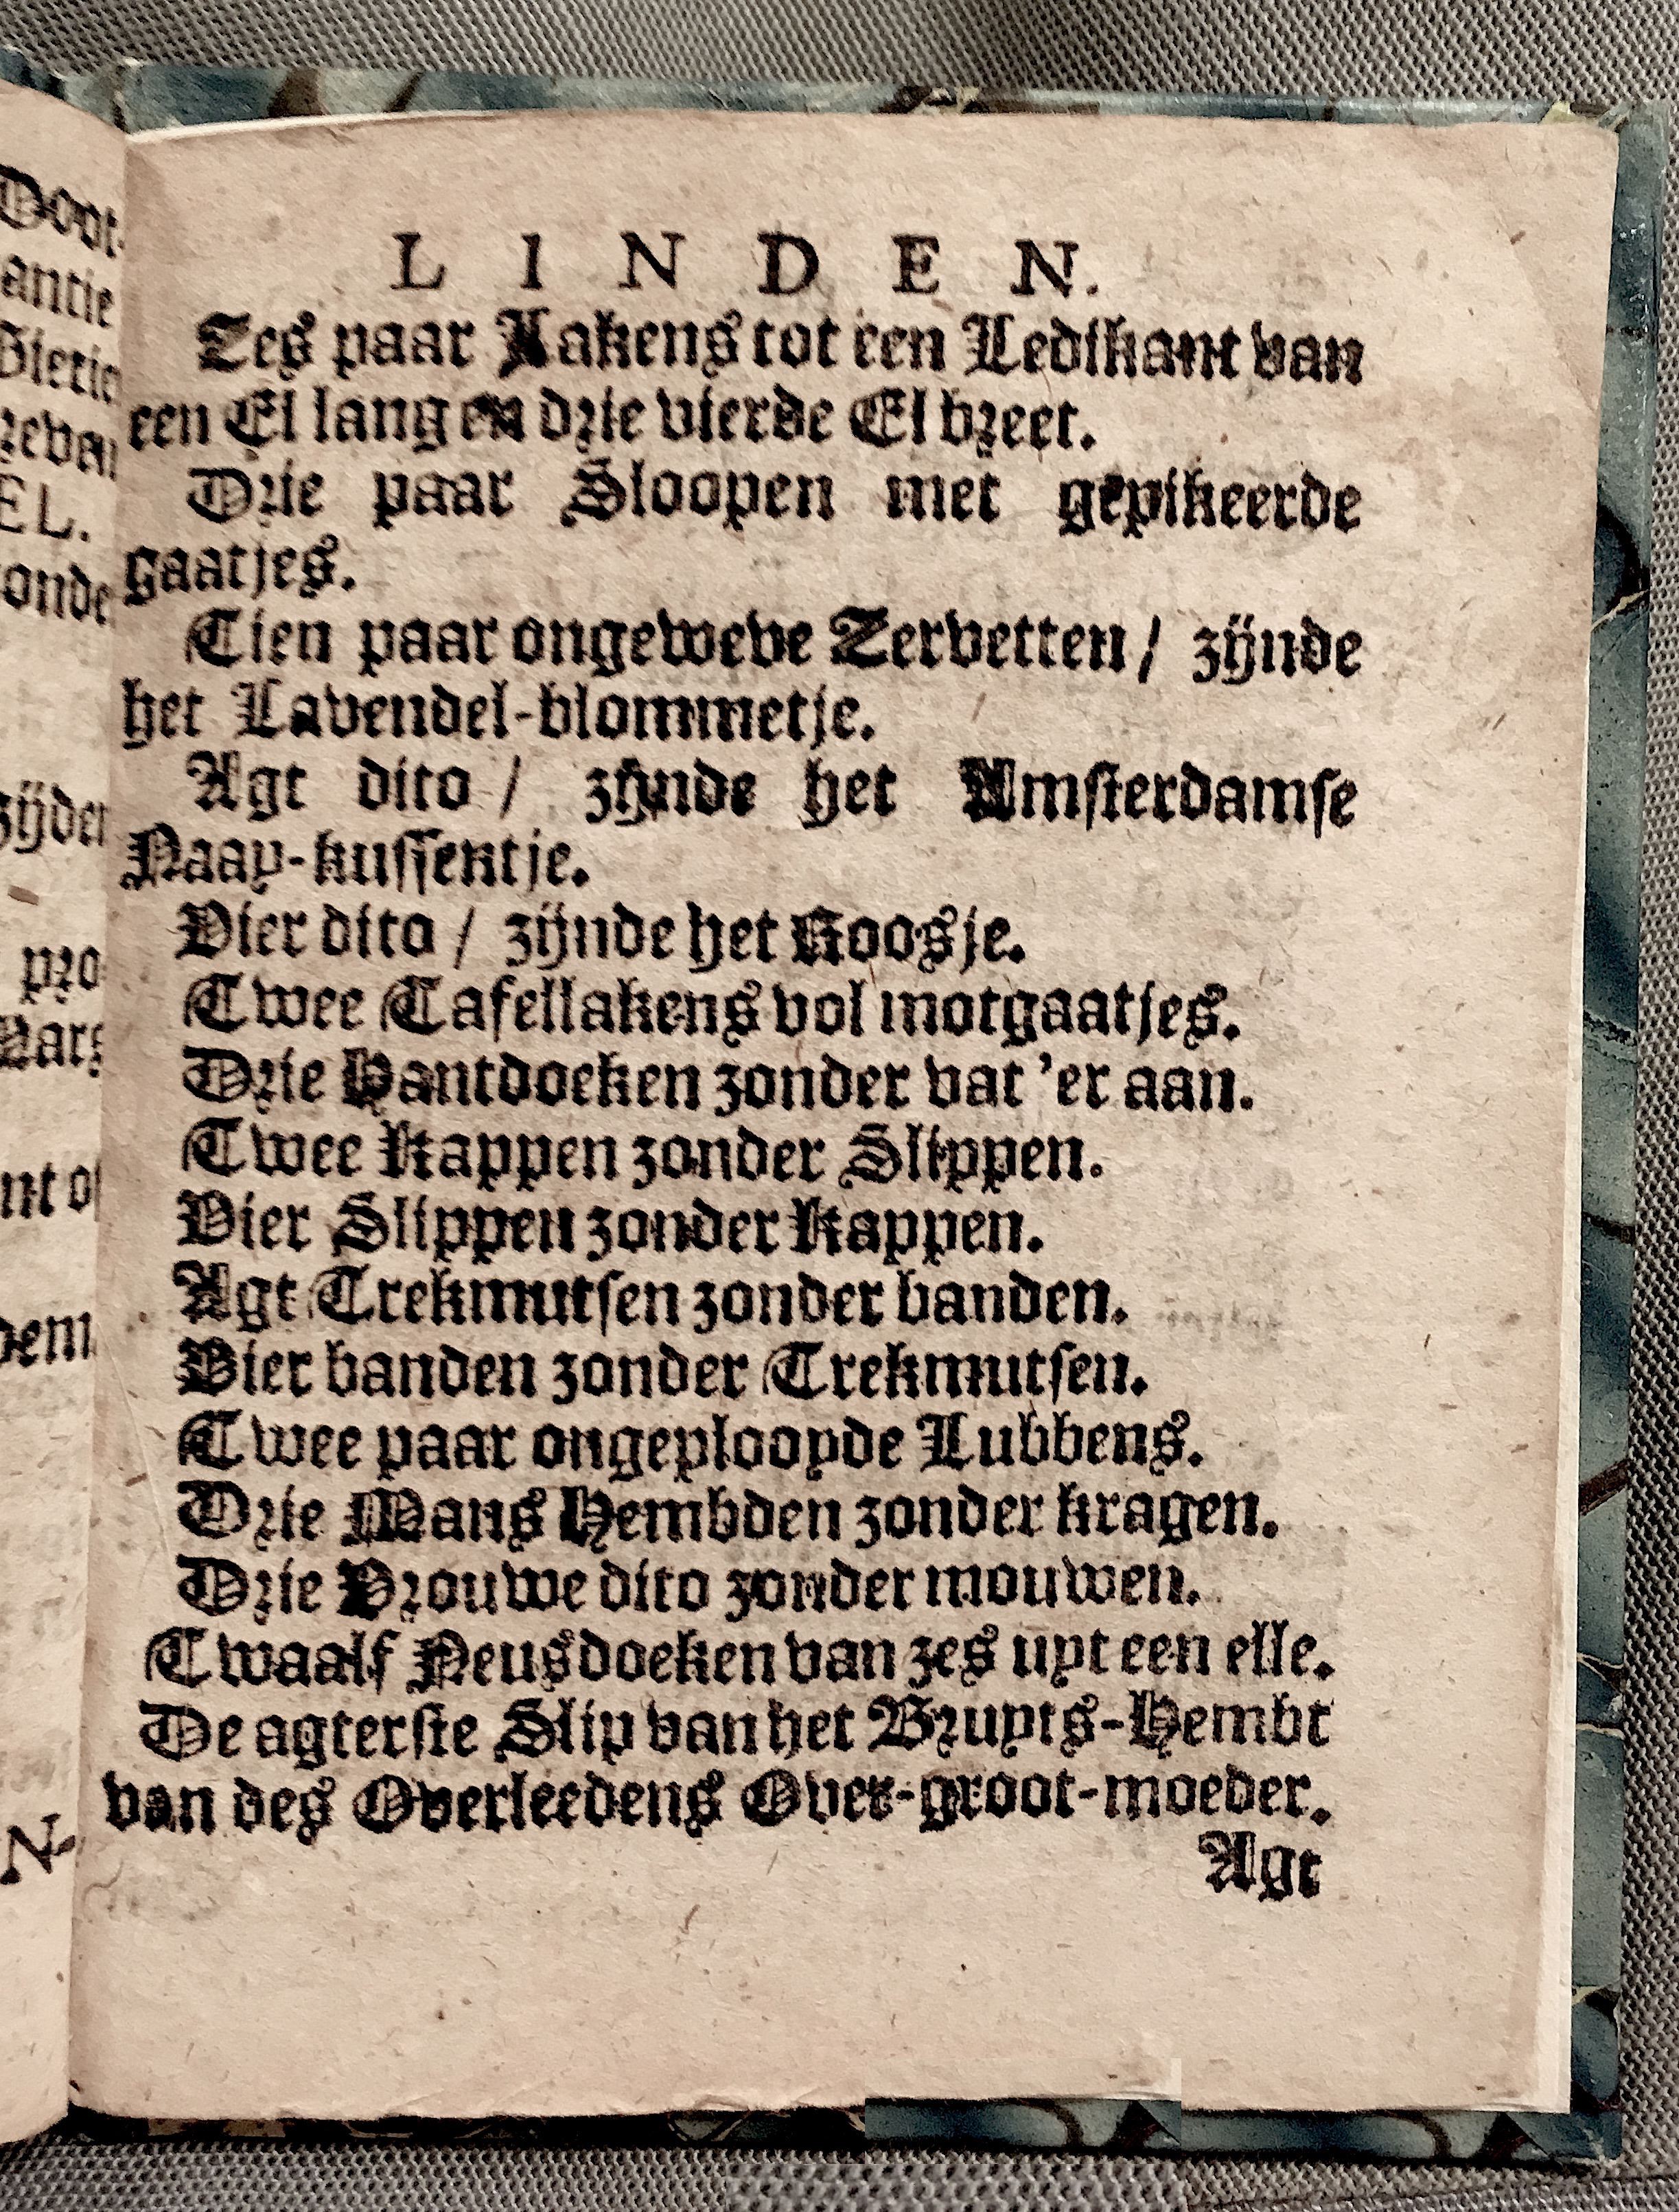 Doot-
antie
EL.
onde
zijden
pro-
nt of
N-
LINDEN.
Zes paar Lakens tot een Ledikant van
een El lang en drie vierde El breet.
Drie paar Sloopen met gepikeerde
gaatjes.
Tien paar ongeweve Zervetten / zijnde
het Lavendel-blommetje.
Agt dito / zijnde het Amsterdamse
Naay-kussentje.
Vier dito / zijnde het Roosje.
Twee Tafellakens vol motgaatjes.
Drie Hantdoeken zonder vat 'er aan.
Twee Kappen zonder Slippen.
Vier Slippen zonder Kappen.
Agt Trekmutsen zonder banden.
Vier banden zonder Trekmutsen.
Twee paar ongeplooyde Lubbens.
Drie Mans Hembden zonder kragen.
Drie Vrouwe dito zonder mouwen.
Twaalf Neusdoeken van zes uyt een elle.
De agterste Slip van het Bruyts-Hembt
van des Overleedens Over-groot-moeder.
Agt